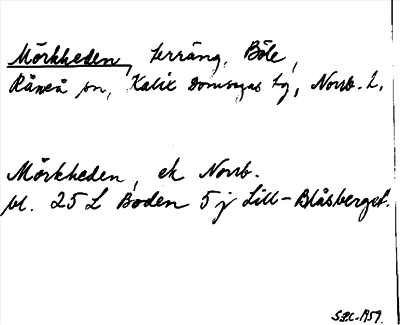 Mörkheden, terräng, Böle,
Råneå sn, Kalix Domsagas tg, Norrb. l.
Mörkheden, ek Norrb.
bl. 25 L Boden 5 j Lill-Blåsberget.